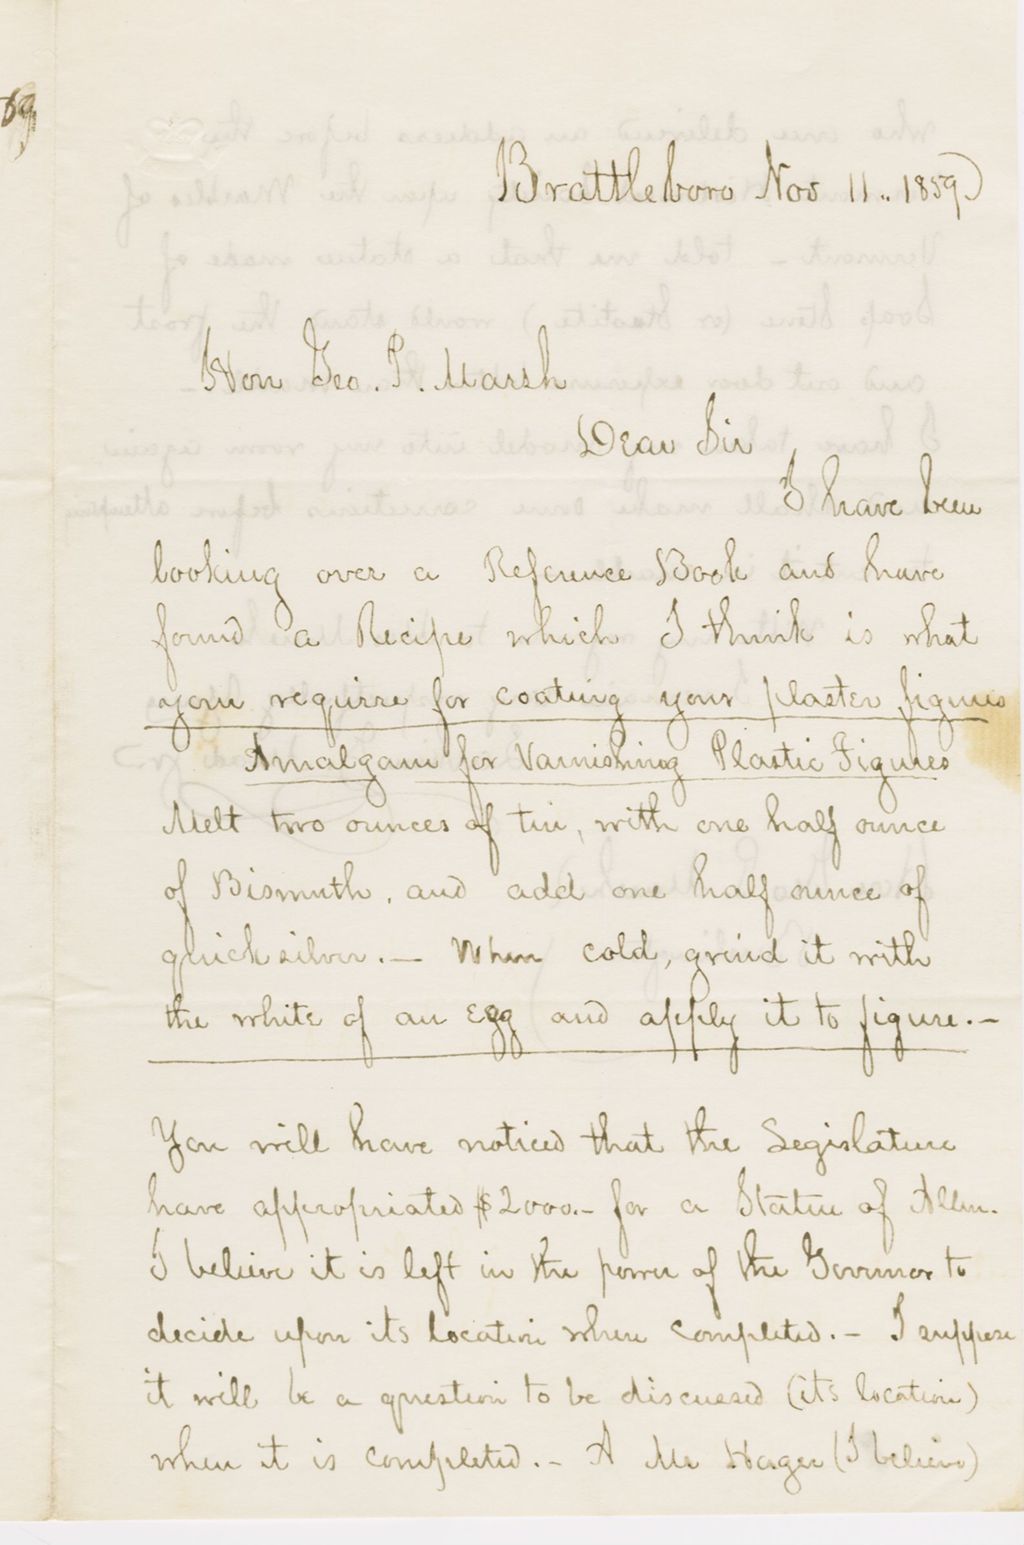 Brattleboro Nov 11.. 1859
Hon Geo. P. Marsh
Dear Sir
I have been
looking over a Reference Book and have
found a Recipe which I think is what
you require for coating your plaster figures
Amalgam for Varnishing Plastic Figures
Melt two ounces of tin, with one half ounce
of Bismuth, and add one half ounce of
quicksilver. — When cold, grind it with
the white of an Egg and apply it to figure. —
You will have noticed that the Legislature
have appropriated $2000.- for a Statue of Allen.
I believe it is left in the power of the Governor to
decide upon its location when completed. — I suppose
it will be a question to be discussed (its location)
when it is completed. — A Mr Hager (I believe)